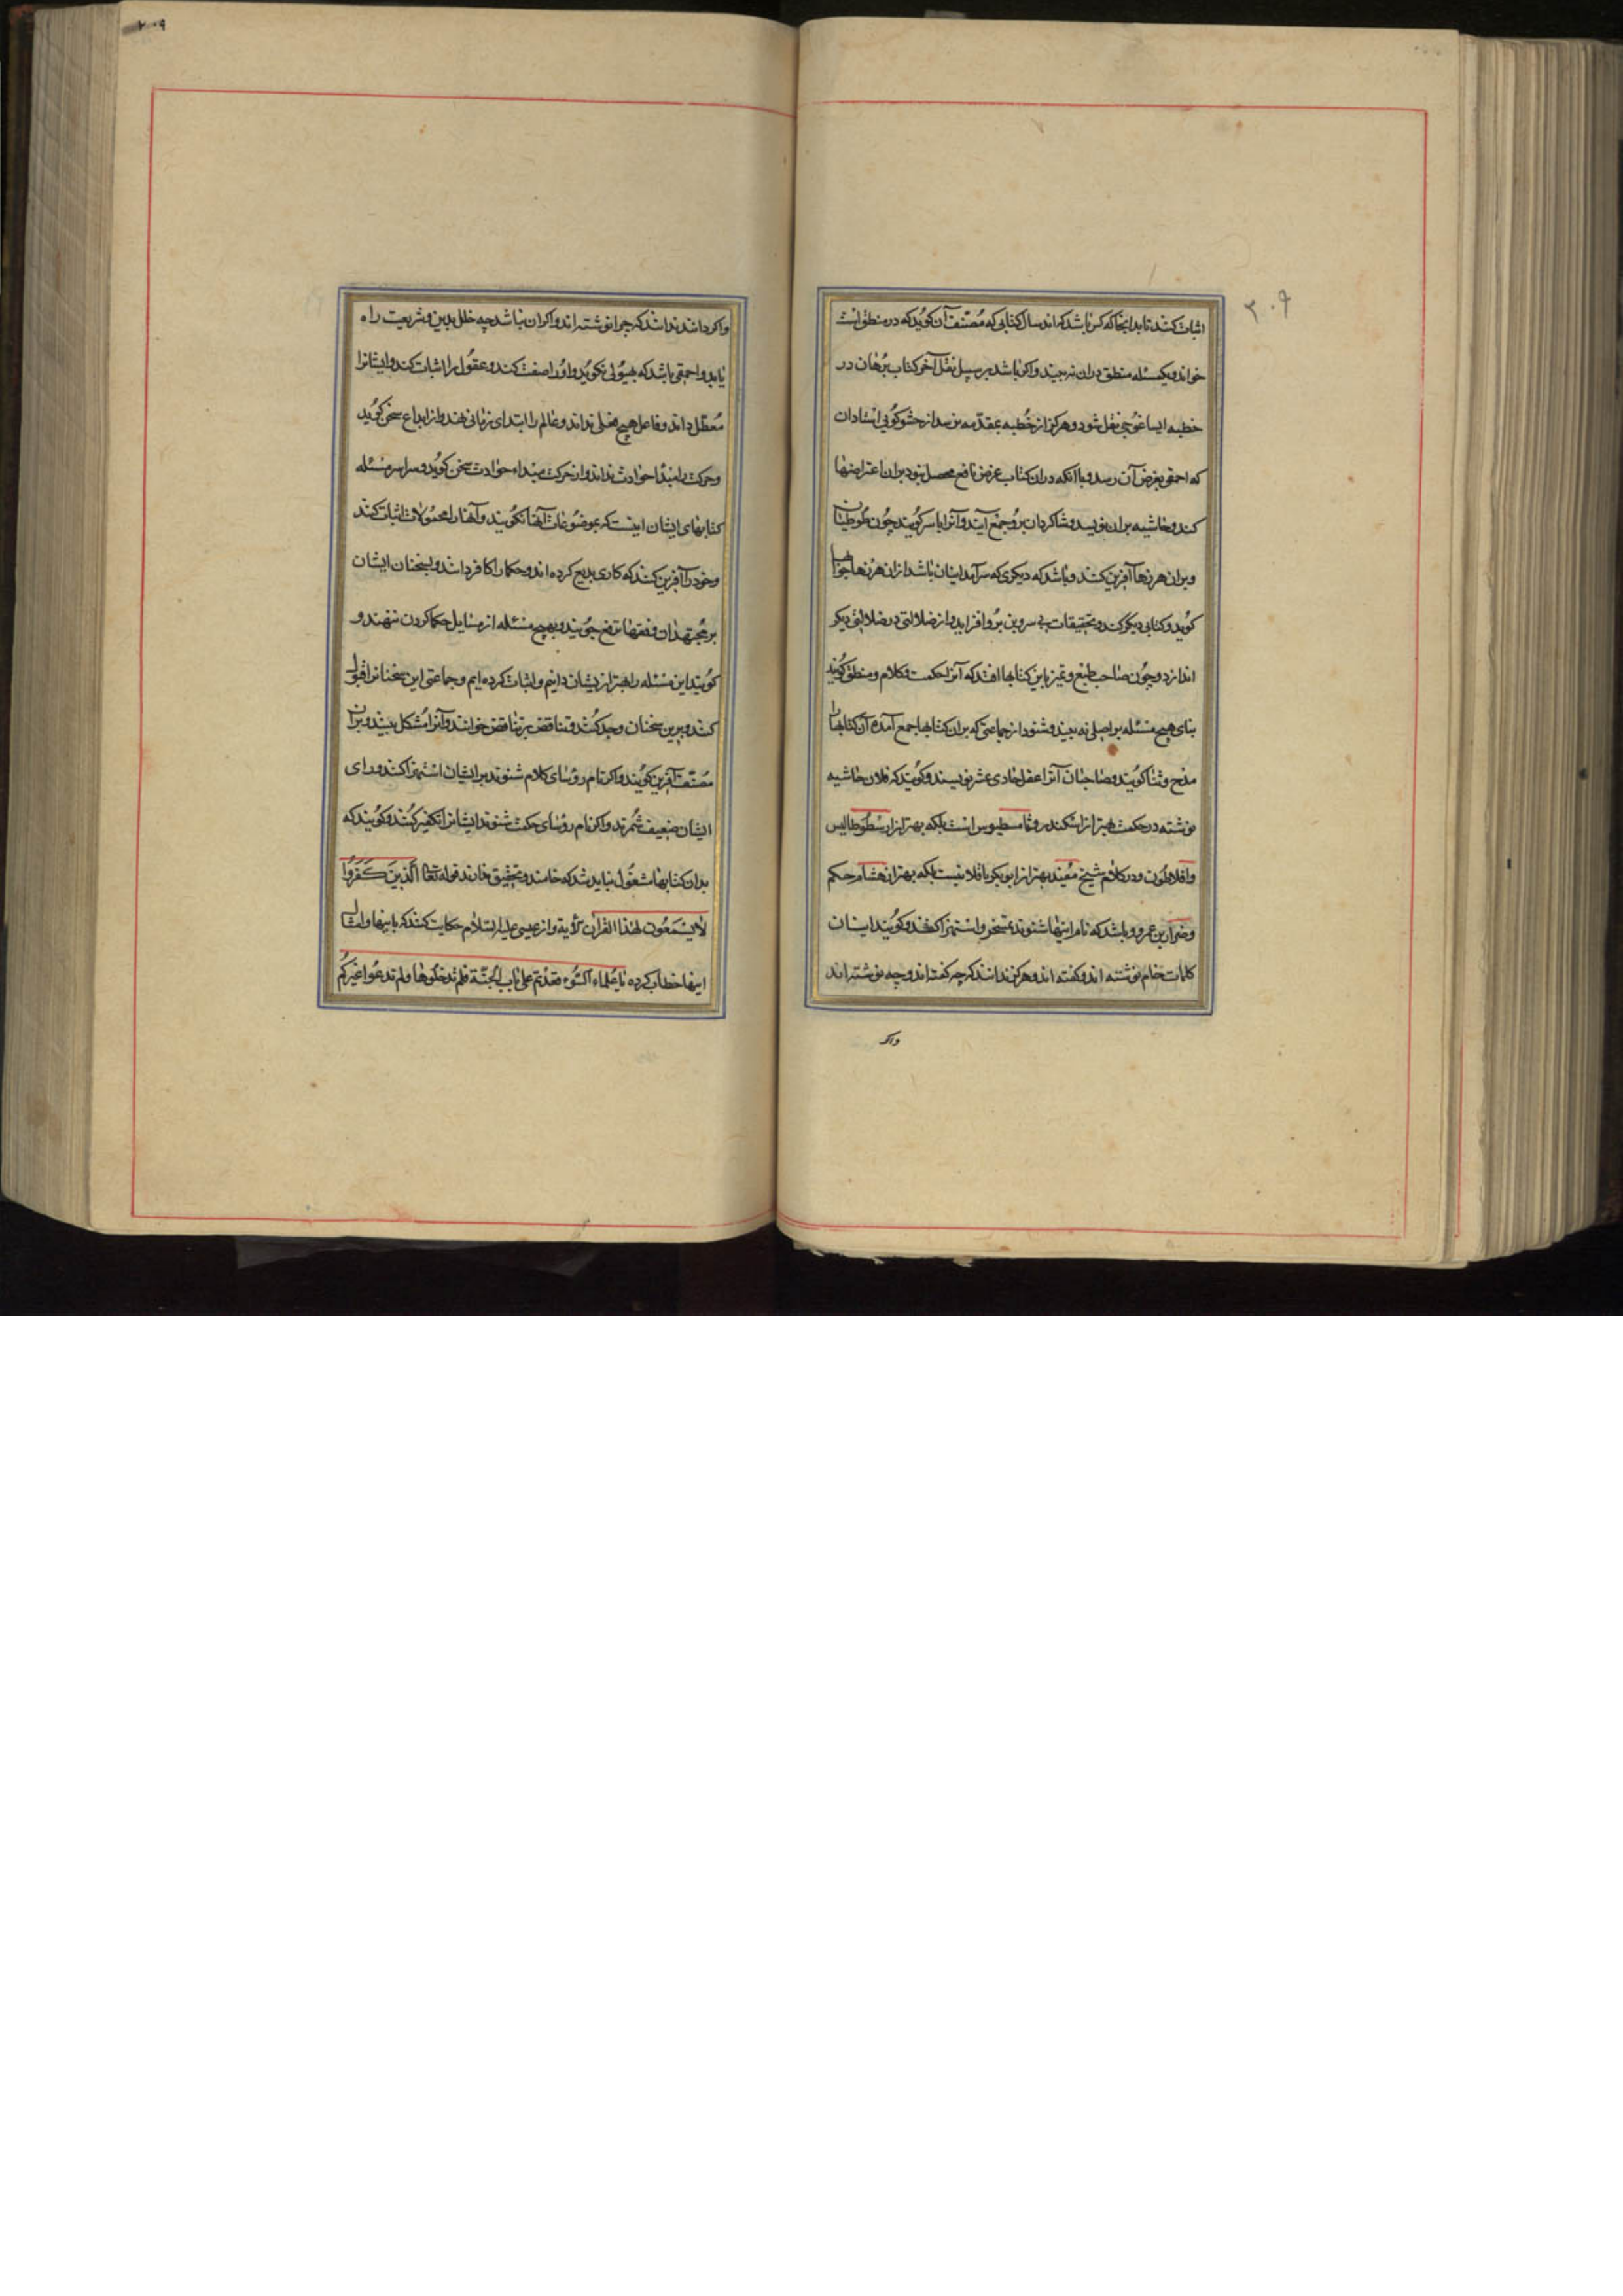 اثبات کنند تا بدانجا که کس باشد که اند سال کتابی که مصنف آن کوید که در منطق است
خواند و یک مسئله منطق دران نه بیند واکر باشد بر سبیل نقل آخر کتاب برهان در
خطبه ایساغوجی نقل شود و هرکز از خطبه بمقدمه نرسد از حشو کویی استادان
که احمق بغرض آن رسد و با آنکه دران کتاب غرض نافع محصل نبود بران اعتراضها
کند و حاشیه بران نویسد و شاکردان برو جمع آیند و آنرا باسر کویند چون طوطیان
و بران هرزها آفرین کنند و باشد که دیکری که سرآمد ایشان باشد ازان هرزها جوابها
کوید و کتابی دیکر کند و تحقیقات بی سر و بن برو افزاید و از ضلالتی در ضلالتی دیکر
اندازد و چون صاحب طبع و تمیز باین کتابها افتد که آنرا حکمت و کلام و منطق کویند
بنای هیچ مسئله بر اصلی نه بیند و شنود از جماعتی که بران کتابها جمع آمده آن کتابها را
مدح و ثنا کویند و صاحبان آنرا عقل حادی عشر نویسند و کویند که فلان حاشیه
نوشته در حکمت بهتر از اسکندر و ثامسطیوس است بلکه بهتر از ارسطوطالیس
و افلاطون و در کلام شیخ مفید بهتر از ابوبکر باقلانیست بلکه بهتر از هشام حکم
و ضرار بن عمرو و باشد که نام اینها شنوند تمسخر و استهزا کنند و کویند ایشان
کلمات خام نوشته اند و کفته اند و هرکز ندانند که چه کفته اند و چه نوشته اند
واکر
واکر دانند ندانند که چرا نوشته اند واکر آن نباشد چه خلل بدین و شریعت راه
یابد و احمقی باشد که هیولی نکوید و او را صفت کند و عقول را اثبات کند و ایشانرا
معطل داند و فاعل هیچ فعلی نداند و عالم را ابتدای زمانی نهد و از ابداع سخن کوید
و حرکت را مبدأ حوادث نداند و از حرکت مبداء حوادث سخن کوید و سراسر مسئله
کتابهای ایشان اینست که بموضوعات آنها نکویند و آنها را محمولات اثبات کنند
و خود را آفرین کنند که کاری بدیع کرده اند و حکما را کافر دانند و بسخنان ایشان
بر مجتهدان و فقها ترفع جویند و بهیچ مسئله از مسایل حکما کردن ننهند و
کویند این مسئله را بهتر از ایشان دانیم و اثبات کرده ایم و جماعتی این سخنانرا قبول
کنند و برین سخنان وجد کنند و تناقض بر تناقض خوانند و آنرا مشکل بینند و بران
مصنف آفرین کویند واکر نام رؤسای کلام شنوند بر ایشان استهزا کنند و رای
ایشان ضعیف شمرند واکر نام رؤسای حکمت شنوند ایشانرا تکفیر کنند و کویند که
بدان کتابها مشغول نباید شد که خامند و بتحقیق خانند قوله تعالی الذین کفروا
لا یسمعون لهذا القرآن الآیة و از عیسی علیه السلام حکایت کنند که باینها و امثال
اینها خطاب کرده یا علماء السوء قعدتم علی باب الجنة فلم تدخلوها ولم تدعوا غیرکم